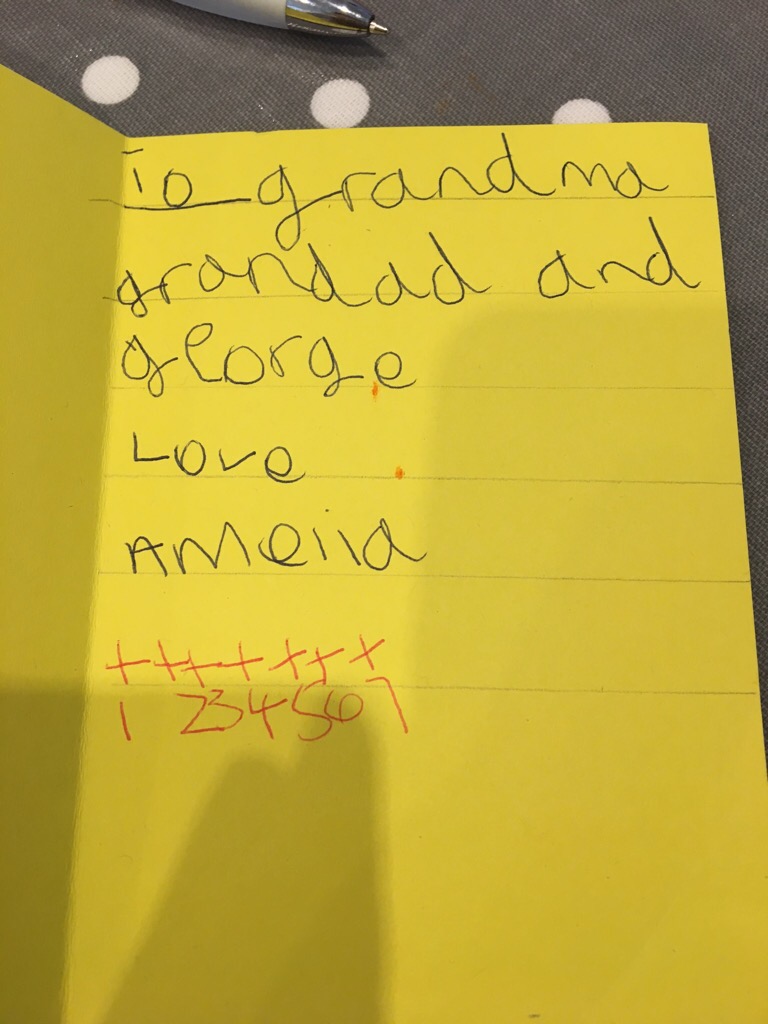 To grandma
grandad and
george
Love
Amelia
+ + + + + + +
1 2 3 4 5 6 7